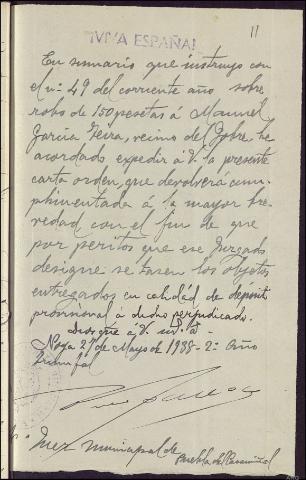 11
¡VIVA ESPAÑA!
En sumario que instruyo con
el nº 49 del corriente año sobre
robo de 150 pesetas á Manuel
Garcia Neira, vecino del Sobre, he
acordado expedir á V. la presente
carta orden, que devolverá cum-
plimentada á la mayor bre-
vedad con el fin de que
por peritos que ese Juzgado
designe se tasen los objetos
entregados en calidad de deposito
provisional á dicho perjudicado.
Dios gue á V. ms. as.
Noya 27 de Mayo de 1938 - 2º Año
Triunfal
Juez municipal de Puebla del Caramiñal